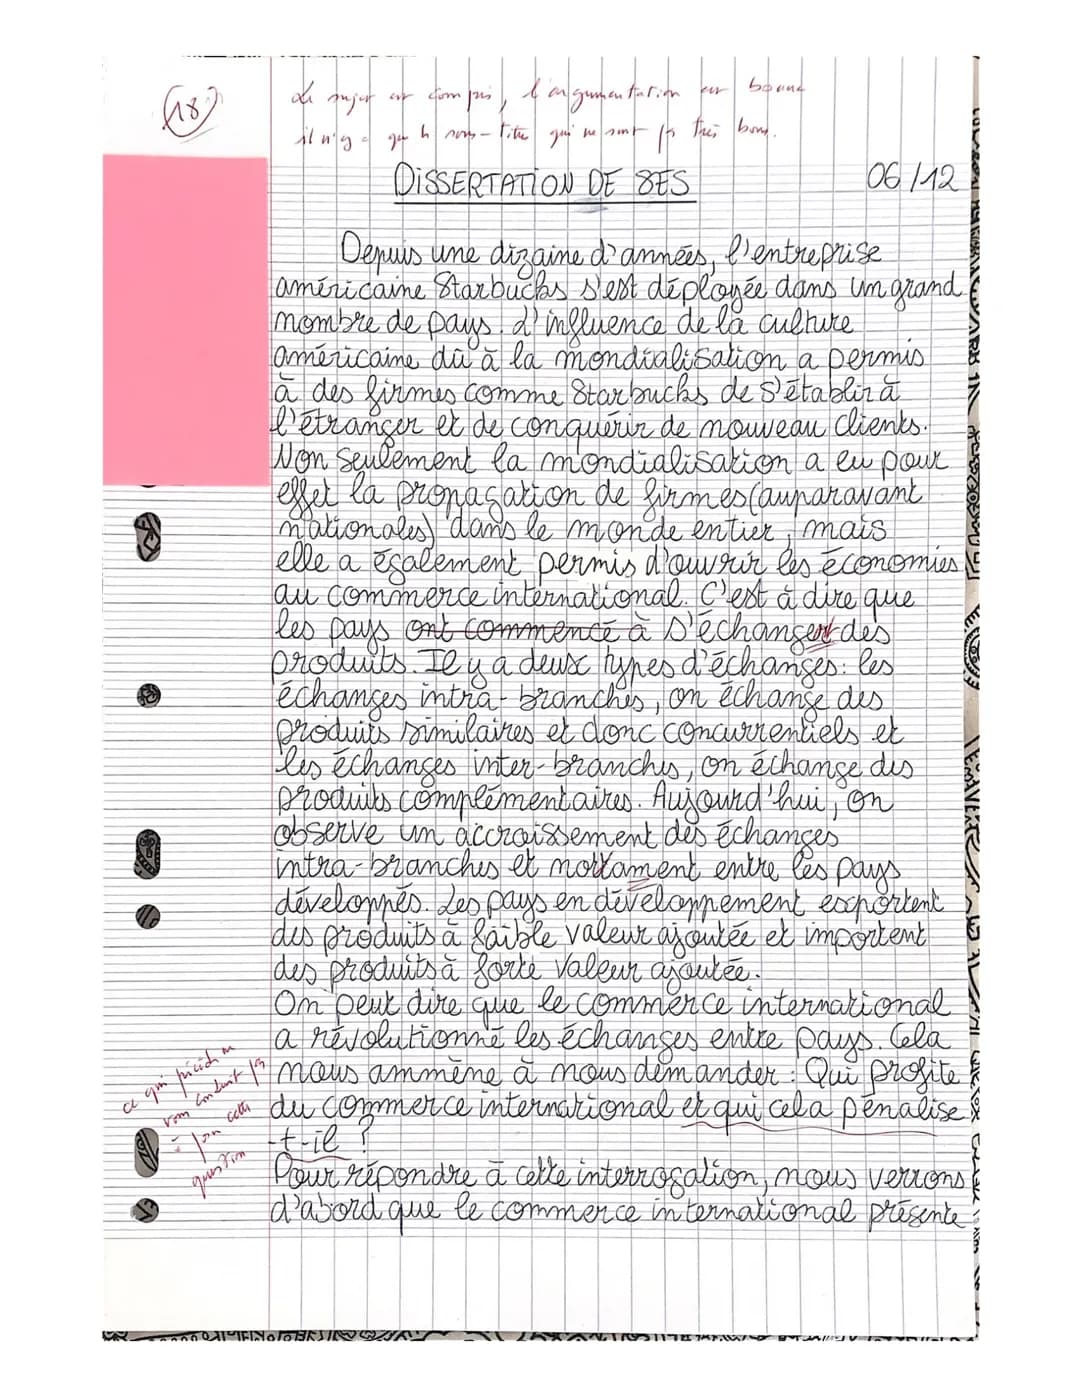 18
Le sujet est compris, l'argumentation est bonne
il n'y a que les sous-titres qui ne sont pas très bons.
DISSERTATION DE SES
06/12
Depuis une dizaine d'années, l'entreprise
américaine Starbucks s'est déployée dans un grand
nombre de pays. L'influence de la culture
américaine dû à la mondialisation a permis
à des firmes comme Starbucks de s'établir à
l'étranger et de conquérir de nouveau clients.
Non seulement la mondialisation a eu pour
effet la propagation de firmes (auparavant
nationales) dans le monde entier, mais
elle a également permis d'ouvrir les économies
au commerce international. C'est à dire que
les pays ont commencé à s'échangent des
produits. Il y a deux types d'échanges : les
échanges intra-branches, on échange des
produits similaires et donc concurrentiels et
les échanges inter-branches, on échange des
produits complémentaires. Aujourd'hui, on
observe un accroissement des échanges
intra-branches et nottament entre les pays
développés. Les pays en développement exportent
des produits à faible valeur ajoutée et importent
des produits à forte valeur ajoutée.
On peut dire que le commerce international
a révolutionné les échanges entre pays. Cela
nous ammène à nous demander : Qui profite
du commerce international et qui cela pénalise
-t-il ?
ce qui précède ne
vous conduit pas
à poser cette
question
Pour répondre à cette interrogation, nous verrons
d'abord que le commerce international présente